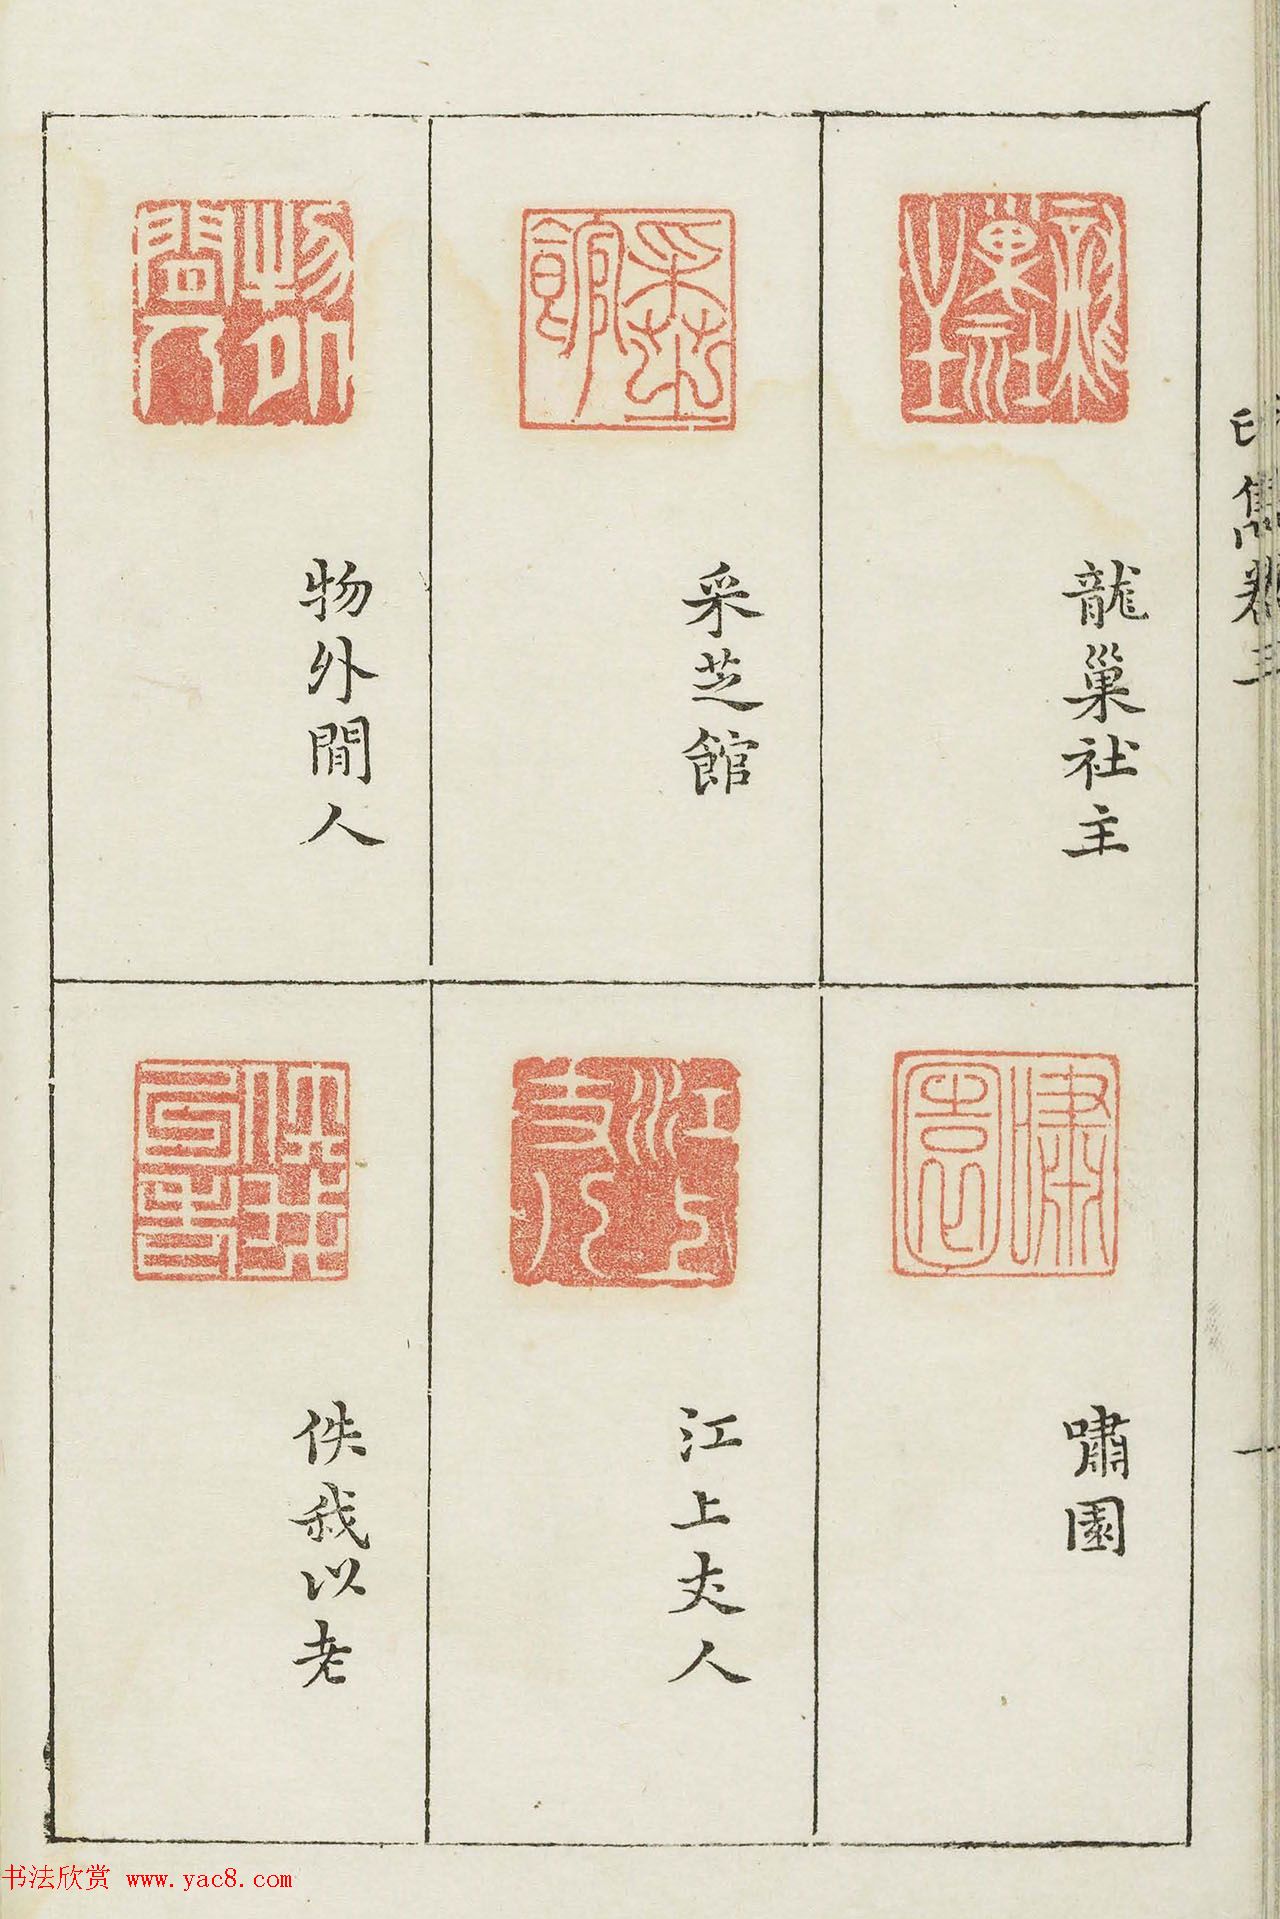 印雋卷三
一
龍巢社主
采芝館
物外閒人
嘯園
江上丈人
佚我以老
书法欣赏 www.yac8.com